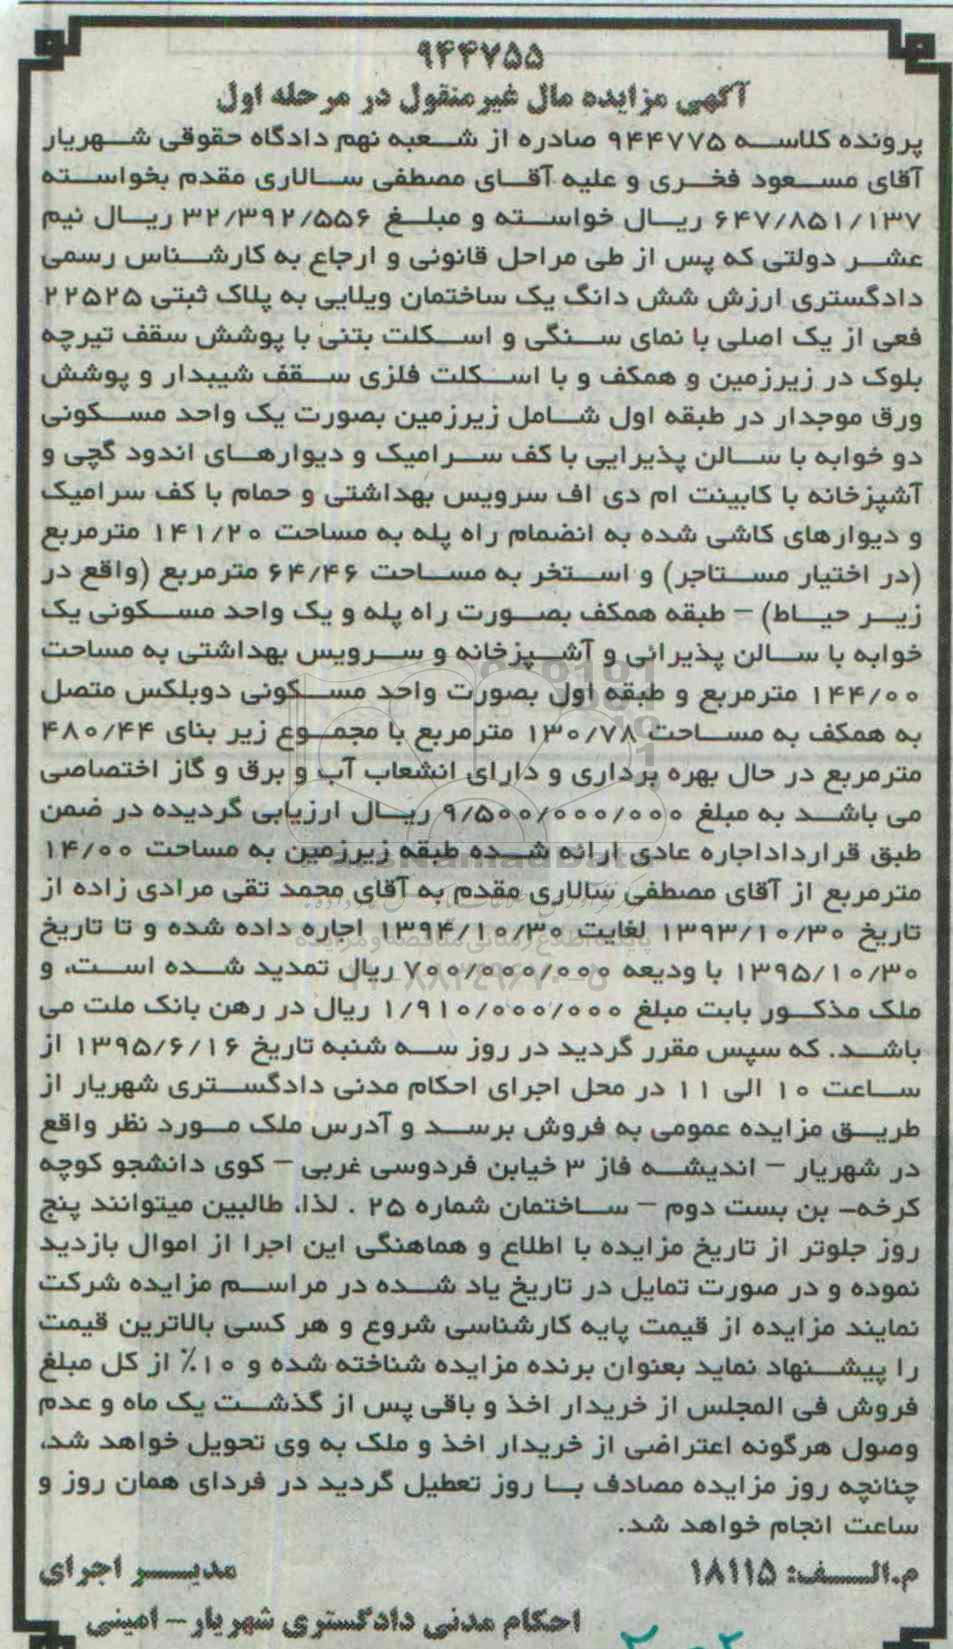 ۹۴۴۷۵۵
آگهی مزایده مال غیرمنقول در مرحله اول
پرونده کلاسه ۹۴۴۷۷۵ صادره از شعبه نهم دادگاه حقوقی شهریار
آقای مسعود فخری و علیه آقای مصطفی سالاری مقدم بخواسته
۶۴۷/۸۵۱/۱۳۷ ریال خواسته و مبلغ ۳۲/۳۹۲/۵۵۶ ریال نیم
عشر دولتی که پس از طی مراحل قانونی و ارجاع به کارشناس رسمی
دادگستری ارزش شش دانگ یک ساختمان ویلایی به پلاک ثبتی ۲۲۵۲۵
فعی از یک اصلی با نمای سنگی و اسکلت بتنی با پوشش سقف تیرچه
بلوک در زیرزمین و همکف و با اسکلت فلزی سقف شیبدار و پوشش
ورق موجدار در طبقه اول شامل زیرزمین بصورت یک واحد مسکونی
دو خوابه با سالن پذیرایی با کف سرامیک و دیوارهای اندود گچی و
آشپزخانه با کابینت ام دی اف سرویس بهداشتی و حمام با کف سرامیک
و دیوارهای کاشی شده به انضمام راه پله به مساحت ۱۴۱/۲۰ مترمربع
(در اختیار مستاجر) و استخر به مساحت ۶۴/۴۶ مترمربع (واقع در
زیر حیاط) – طبقه همکف بصورت راه پله و یک واحد مسکونی یک
خوابه با سالن پذیرائی و آشپزخانه و سرویس بهداشتی به مساحت
۱۴۴/۰۰ مترمربع و طبقه اول بصورت واحد مسکونی دوبلکس متصل
به همکف به مساحت ۱۳۰/۷۸ مترمربع با مجموع زیر بنای ۴۸۰/۴۴
مترمربع در حال بهره برداری و دارای انشعاب آب و برق و گاز اختصاصی
می باشد به مبلغ ۹/۵۰۰/۰۰۰/۰۰۰ ریال ارزیابی گردیده در ضمن
طبق قرارداداجاره عادی ارائه شده طبقه زیرزمین به مساحت ۱۴/۰۰
مترمربع از آقای مصطفی سالاری مقدم به آقای محمد تقی مرادی زاده از
تاریخ ۱۳۹۳/۱۰/۳۰ لغایت ۱۳۹۴/۱۰/۳۰ اجاره داده شده و تا تاریخ
۱۳۹۵/۱۰/۳۰ با ودیعه ۷۰۰/۰۰۰/۰۰۰ ریال تمدید شده است، و
ملک مذکور بابت مبلغ ۱/۹۱۰/۰۰۰/۰۰۰ ریال در رهن بانک ملت می
باشد. که سپس مقرر گردید در روز سه شنبه تاریخ ۱۳۹۵/۶/۱۶ از
ساعت ۱۰ الی ۱۱ در محل اجرای احکام مدنی دادگستری شهریار از
طریق مزایده عمومی به فروش برسد و آدرس ملک مورد نظر واقع
در شهریار – اندیشه فاز ۳ خیابن فردوسی غربی – کوی دانشجو کوچه
کرخه- بن بست دوم – ساختمان شماره ۲۵ . لذا، طالبین میتوانند پنج
روز جلوتر از تاریخ مزایده با اطلاع و هماهنگی این اجرا از اموال بازدید
نموده و در صورت تمایل در تاریخ یاد شده در مراسم مزایده شرکت
نمایند مزایده از قیمت پایه کارشناسی شروع و هر کسی بالاترین قیمت
را پیشنهاد نماید بعنوان برنده مزایده شناخته شده و ۱۰٪ از کل مبلغ
فروش فی المجلس از خریدار اخذ و باقی پس از گذشت یک ماه و عدم
وصول هرگونه اعتراضی از خریدار اخذ و ملک به وی تحویل خواهد شد،
چنانچه روز مزایده مصادف با روز تعطیل گردید در فردای همان روز و
ساعت انجام خواهد شد.
م.الف: ۱۸۱۱۵ مدیر اجرای
احکام مدنی دادگستری شهریار- امینی